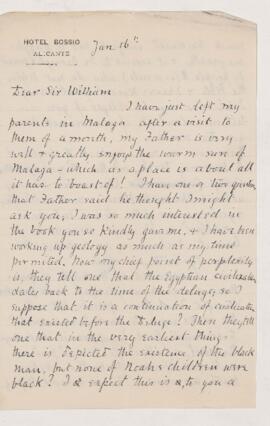 HOTEL BOSSIO
ALICANTE
Jan 16th
Dear Sir William
I have just left my
parents in Malaga after a visit to
them of a month, my Father is very
well & greatly enjoys the warm sun of
Malaga - which as a place is about all
it has to boast of! I have one or two questions
that Father said he thought I might
ask you, I was so much interested in
the book you so kindly gave me, & I have been
working up geology as much as my time
permitted. Now my chief point of perplexity
is, they tell one that the Egyptian civilization
dates back to the time of the deluge, so I
suppose that it is a continuation of civilization
that existed before the Deluge? Then they tell
one that in the very earliest things
there is depicted the existence of the black
man, but none of Noahs children were
black? I expect this is to you a